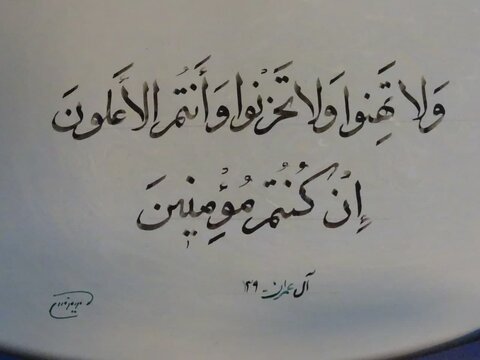 وَلا تَهِنوا وَلا تَحزَنوا وَأَنتُم الأَعلَونَ
إِنْ كُنْتُم مُؤْمِنينَ
آل عمران